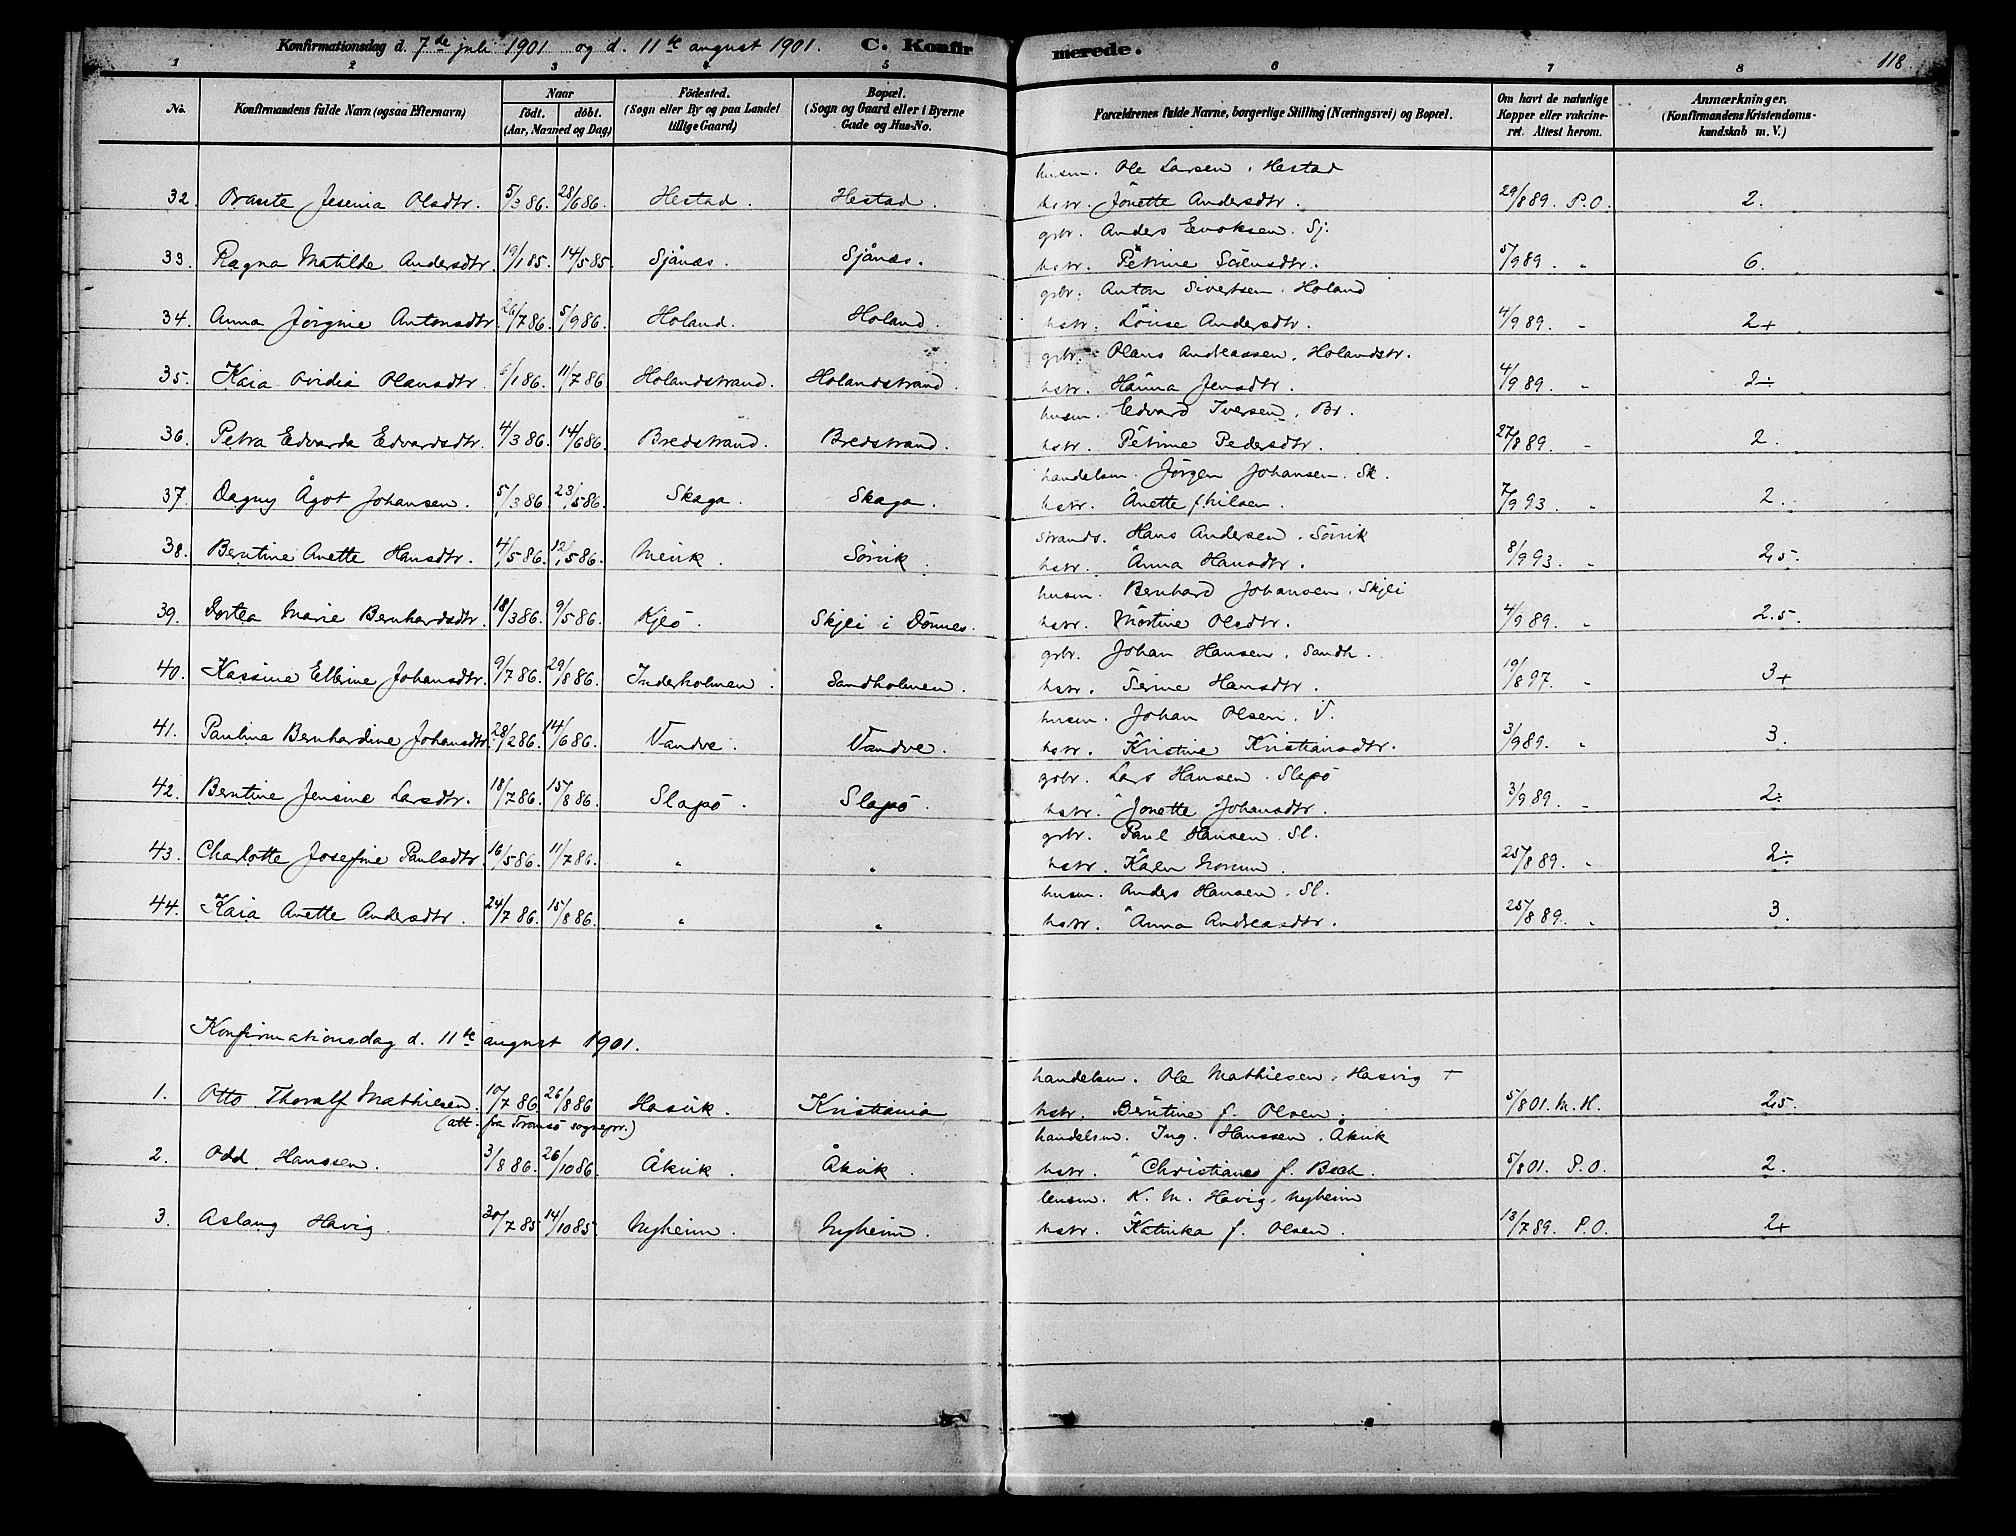 Konfirmationsdag d. 7de juli 1901 og d. 11te august 1901. C. Konfirmerede. 118
1 2 3 4 5 6 7 8
No. Konfirmandens fulde Navn (ogsaa Efternavn) Naar födt. döbt. (Aar, Maaned og Dag) Födested. (Sogn eller By og paa Landet tillige Gaard) Bopæl. (Sogn og Gaard eller i Byerne Gade og Hus-No. Forældrenes fulde Navne, borgerlige Stilling (Næringsvei) og Bopæl. Om havt de naturlige Kopper eller vakcineret. Attest herom. Anmærkninger. (Konfirmandens Kristendomskundskab m. V.)
husm. Ole Larsen, Hestad
32. Jesenia Olsdtr. 5/3 86. 28/6 86. Hestad. Hestad. hstr. Jonette Andersdtr. 29/8 89. P.O. 2.
grbr. Anders Enoksen. Sj.
33. Ragna Matilde Andersdtr. 19/1 85. 14/5 85. Sjånæs. Sjånæs. hstr. Petrine 5/9 89. " 6.
grbr. Anton Sivertsen. Holand
34. Anna Jørgine Antonsdtr. 26/7 86. 5/9 86. Holand. Holand. hstr. Louise Andersdtr. 4/9 89. " 2+
grbr. Olaus Andreassen, Holandstr.
35. Kaia Ovidia Olausdtr. 6/1 86. 11/7 86. Holandstrand. Holandstrand. hstr. Hanna Jensdtr. 4/9 89. " 2÷
husm. Edvard Iversen, Br.
36. Petra Edvarda Edvardsdtr. 4/3 86. 14/6 86. Bredstrand. Bredstrand. hstr. Petrine Pedersdtr. 27/8 89. " 2.
handelsm. Jörgen Johansen. Sk.
37. Dagny Ågot Johansen. 5/3 86. 23/5 86. Skaga. Skaga. hstr. Anette f. Nilsen. 7/9 93. " 2.
strands. Hans Andersen. Sörvik
38. Berntine Anette Hansdtr. 4/5 86. 12/5 86. Sörvik. hstr. Anna Hansdtr. 8/9 93. " 2,5
husm. Bernhard Johansen, Skjei
39. Dortea Marie Bernhardsdtr. 18/3 86. 9/5 86. Kjeö. Skjei i Dönnes. hstr. Martine Olsdtr. 4/9 89. " 2.5.
grbr. Johan Hansen, Sandh.
40. Kassine Elbine Johansdtr. 9/7 86. 29/8 86. Inderholmen. Sandholmen. hstr. Serine Hansdtr. 19/8 97. " 3+
husm. Johan Olsen. V.
41. Pauline Bernhardine Johansdtr. 28/2 86. 14/6 86. Vandve. Vandve. hstr. Kristine Kristiansdtr. 3/9 89. " 3.
grbr. Lars Hansen. Slapö
42. Berntine Jensine Larsdtr. 18/7 86. 15/8 86. Slapö. Slapö. hstr. Jonette Johansdtr. 3/9 89. " 2÷
grbr. Paul Hansen. Sl.
43. Charlotte Josefine Paulsdtr. 16/5 86. 11/7 86. " " hstr. Karen Norum. 25/8 89. " 2÷
husm. Anders Hansen. Sl.
44. Kaia Anette Andersdtr. 24/7 86. 15/8 86. " " hstr. Anna Andreasdtr. 25/8 89. " 3.
Konfirmationsdag d. 11te august 1901.
handelsm. Ole Mathiesen, Hasvig +
1. Otto Thoralf Mathiesen. 10/7 86. 26/8 86 Hasvik. Kristiania hstr. Berntine f. Olsen. 5/8 01. M.K. 2,5.
(att. fra Tromsö sognepr.)
handelsm. Ing. Hanssen. Åkvik
2. Odd Hanssen. 3/8 86. 26/10 86. Åkvik. Åkvik. hstr. Christiane f. Bech. 5/8 01. P.O. 2.
lensm. K. M. Havig. Nyheim
3. Aslaug Havig. 30/7 85. 14/10 85. Nyheim. Nyheim. hstr. Katinka f. Olsen. 13/7 89. P.O. 2+